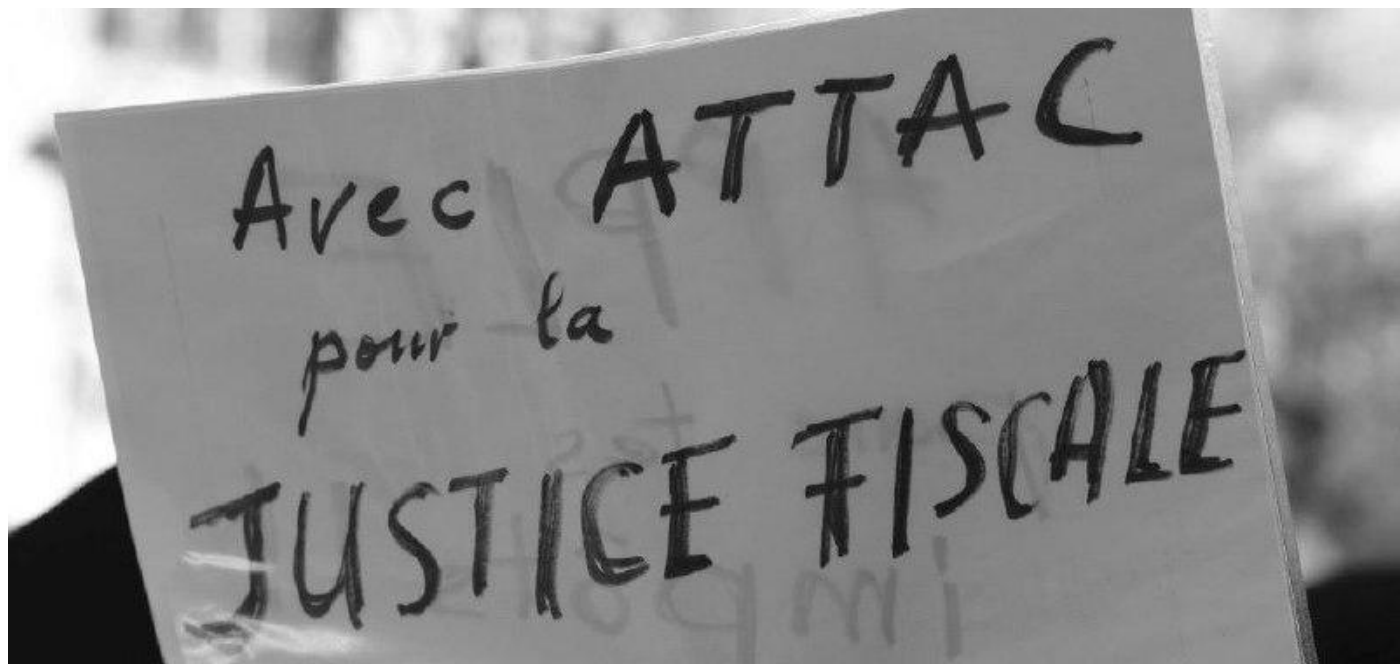 Avec ATTAC
pour la
JUSTICE FISCALE